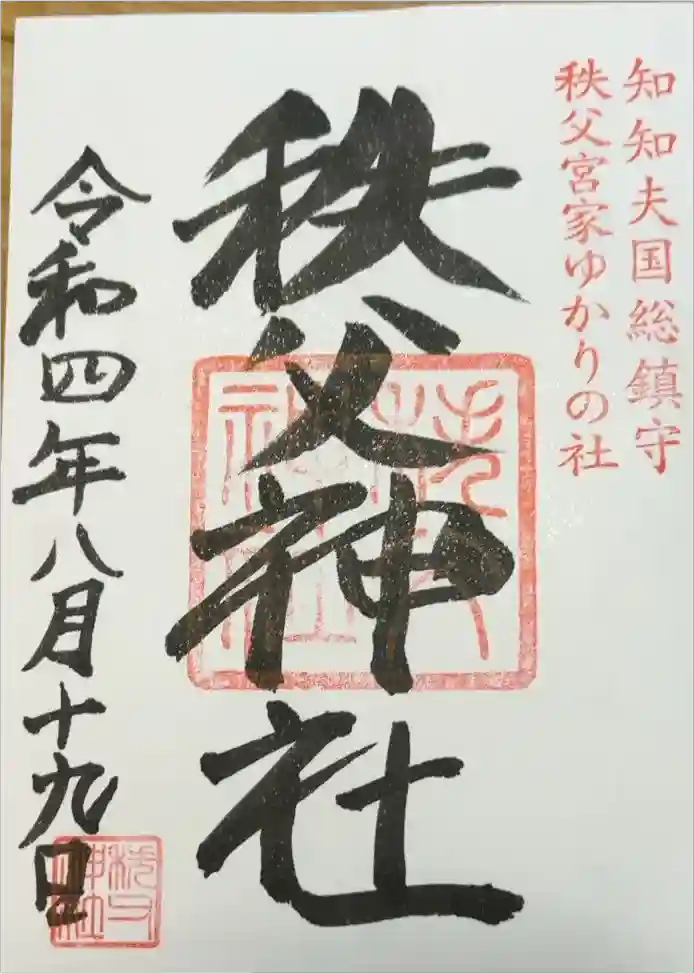 知知夫国総鎮守
秩父宮家ゆかりの社
秩父神社
令和四年八月十九日
秩父神社
秩父神社